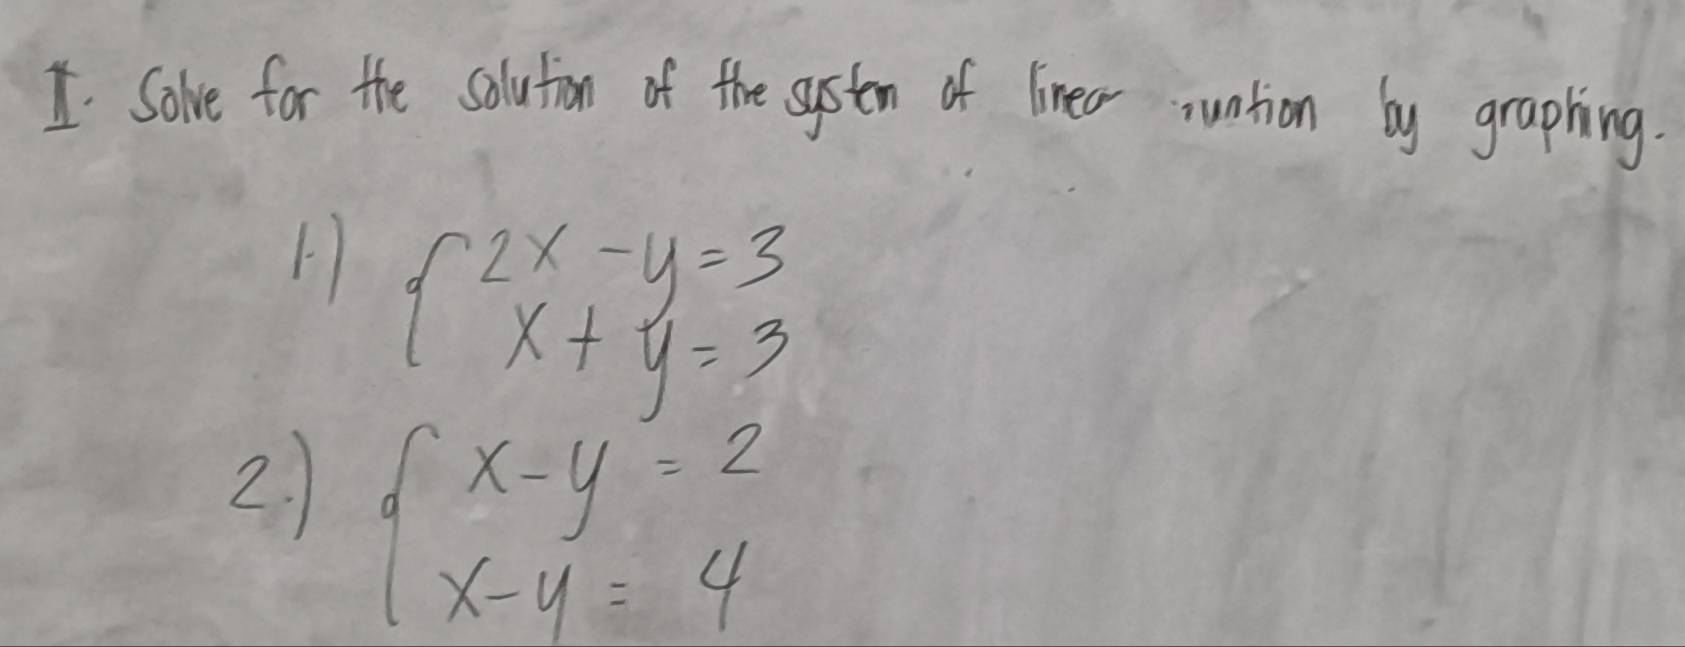 II. Solve for the solution of the system of linear by graphing.
1.) { 2x - y = 3
x + y = 3
2.) { x - y = 2
x - y = 4